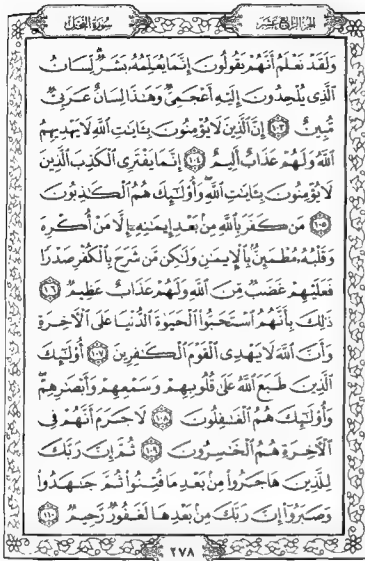 الجزء الرابع عشر
سورة النحل
وَلَقَدْ نَعْلَمُ أَنَّهُمْ يَقُولُونَ إِنَّمَا يُعَلِّمُهُۥ بَشَرٌۗ لِّسَانُ
ٱلَّذِى يُلْحِدُونَ إِلَيْهِ أَعْجَمِىٌّ وَهَٰذَا لِسَانٌ عَرَبِىٌّ
مُّبِينٌ ١٠٣ إِنَّ ٱلَّذِينَ لَا يُؤْمِنُونَ بِـَٔايَٰتِ ٱللَّهِ لَا يَهْدِيهِمُ
ٱللَّهُ وَلَهُمْ عَذَابٌ أَلِيمٌ ١٠٤ إِنَّمَا يَفْتَرِى ٱلْكَذِبَ ٱلَّذِينَ
لَا يُؤْمِنُونَ بِـَٔايَٰتِ ٱللَّهِۖ وَأُو۟لَٰٓئِكَ هُمُ ٱلْكَٰذِبُونَ
١٠٥ مَن كَفَرَ بِٱللَّهِ مِنۢ بَعْدِ إِيمَٰنِهِۦٓ إِلَّا مَنْ أُكْرِهَ
وَقَلْبُهُۥ مُطْمَئِنٌّۢ بِٱلْإِيمَٰنِ وَلَٰكِن مَّن شَرَحَ بِٱلْكُفْرِ صَدْرًا
فَعَلَيْهِمْ غَضَبٌ مِّنَ ٱللَّهِ وَلَهُمْ عَذَابٌ عَظِيمٌ ١٠٦
ذَٰلِكَ بِأَنَّهُمُ ٱسْتَحَبُّوا۟ ٱلْحَيَوٰةَ ٱلدُّنْيَا عَلَى ٱلْءَاخِرَةِ
وَأَنَّ ٱللَّهَ لَا يَهْدِى ٱلْقَوْمَ ٱلْكَٰفِرِينَ ١٠٧ أُو۟لَٰٓئِكَ
ٱلَّذِينَ طَبَعَ ٱللَّهُ عَلَىٰ قُلُوبِهِمْ وَسَمْعِهِمْ وَأَبْصَٰرِهِمْۖ
وَأُو۟لَٰٓئِكَ هُمُ ٱلْغَٰفِلُونَ ١٠٨ لَا جَرَمَ أَنَّهُمْ فِى
ٱلْءَاخِرَةِ هُمُ ٱلْخَٰسِرُونَ ١٠٩ ثُمَّ إِنَّ رَبَّكَ
لِلَّذِينَ هَاجَرُوا۟ مِنۢ بَعْدِ مَا فُتِنُوا۟ ثُمَّ جَٰهَدُوا۟
وَصَبَرُوٓا۟ إِنَّ رَبَّكَ مِنۢ بَعْدِهَا لَغَفُورٌ رَّحِيمٌ ١١٠
٢٧٨